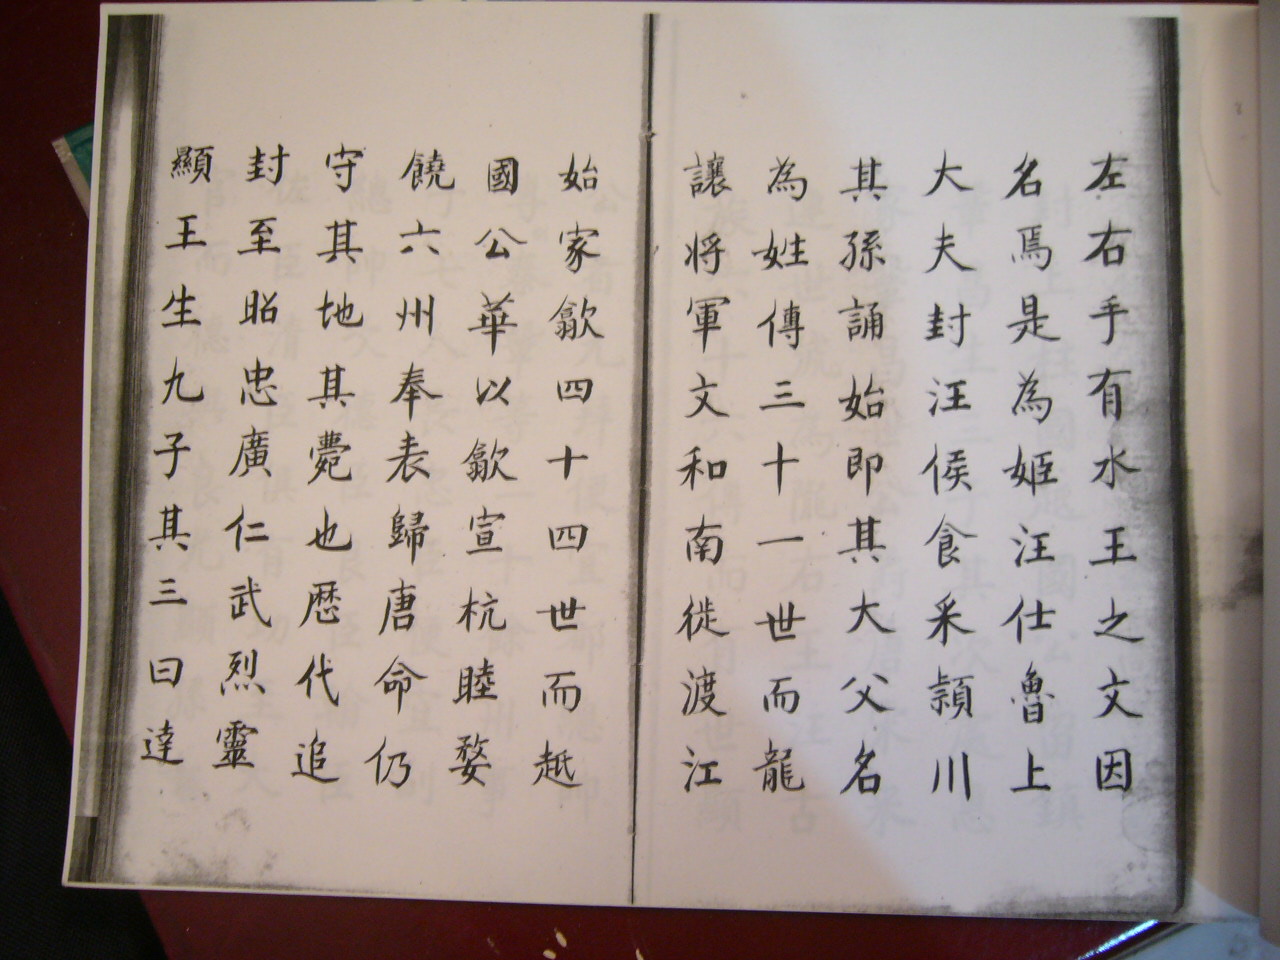 左右手有水王之文因
名焉是為姬汪仕魯上
大夫封汪侯食采頴川
其孫誦始即其大父名
為姓傳三十一世而龍
讓将軍文和南徙渡江
始家歙四十四世而越
國公華以歙宣杭睦婺
饒六州奉表歸唐命仍
守其地其薨也歴代追
封至昭忠廣仁武烈靈
顯王生九子其三曰達